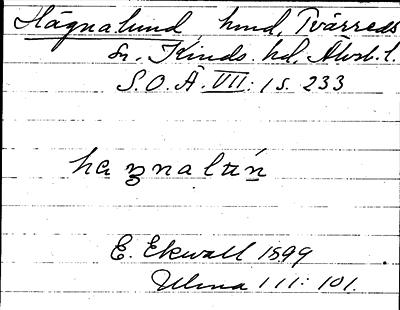 Hägnalund, hmd, Tvärreds
sn. Kinds. hd, Älvsb. l.
S.O.Ä. VII: 1 s. 233
hagnalún
E. Ekwall 1899
Ulma 111: 101.